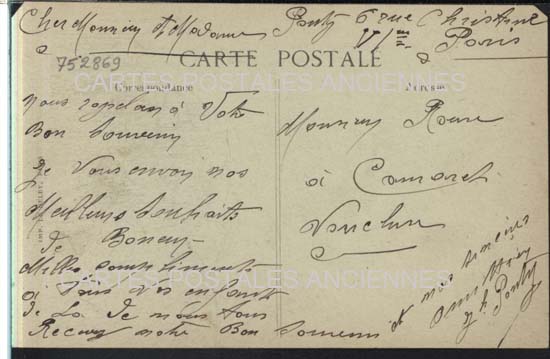 Cher Monsieur et Madame
Pouty 6 rue Christine
VIme Paris
CARTE POSTALE
752869
CARTES POSTALES ANCIENNES
Correspondance
Adresse
nous rapelan a Votre
Bon Souvenir
Je Vous envoi nos
Meilleurs Souhaits
de Boneur
Mille
a tous vos enfants
de la de nous tous
Recevez notre Bon Souvenir
Monsieur
à Camaret
Vaucluse
CARTES POSTALES ANCIENNES
et nos sincères
Pouty